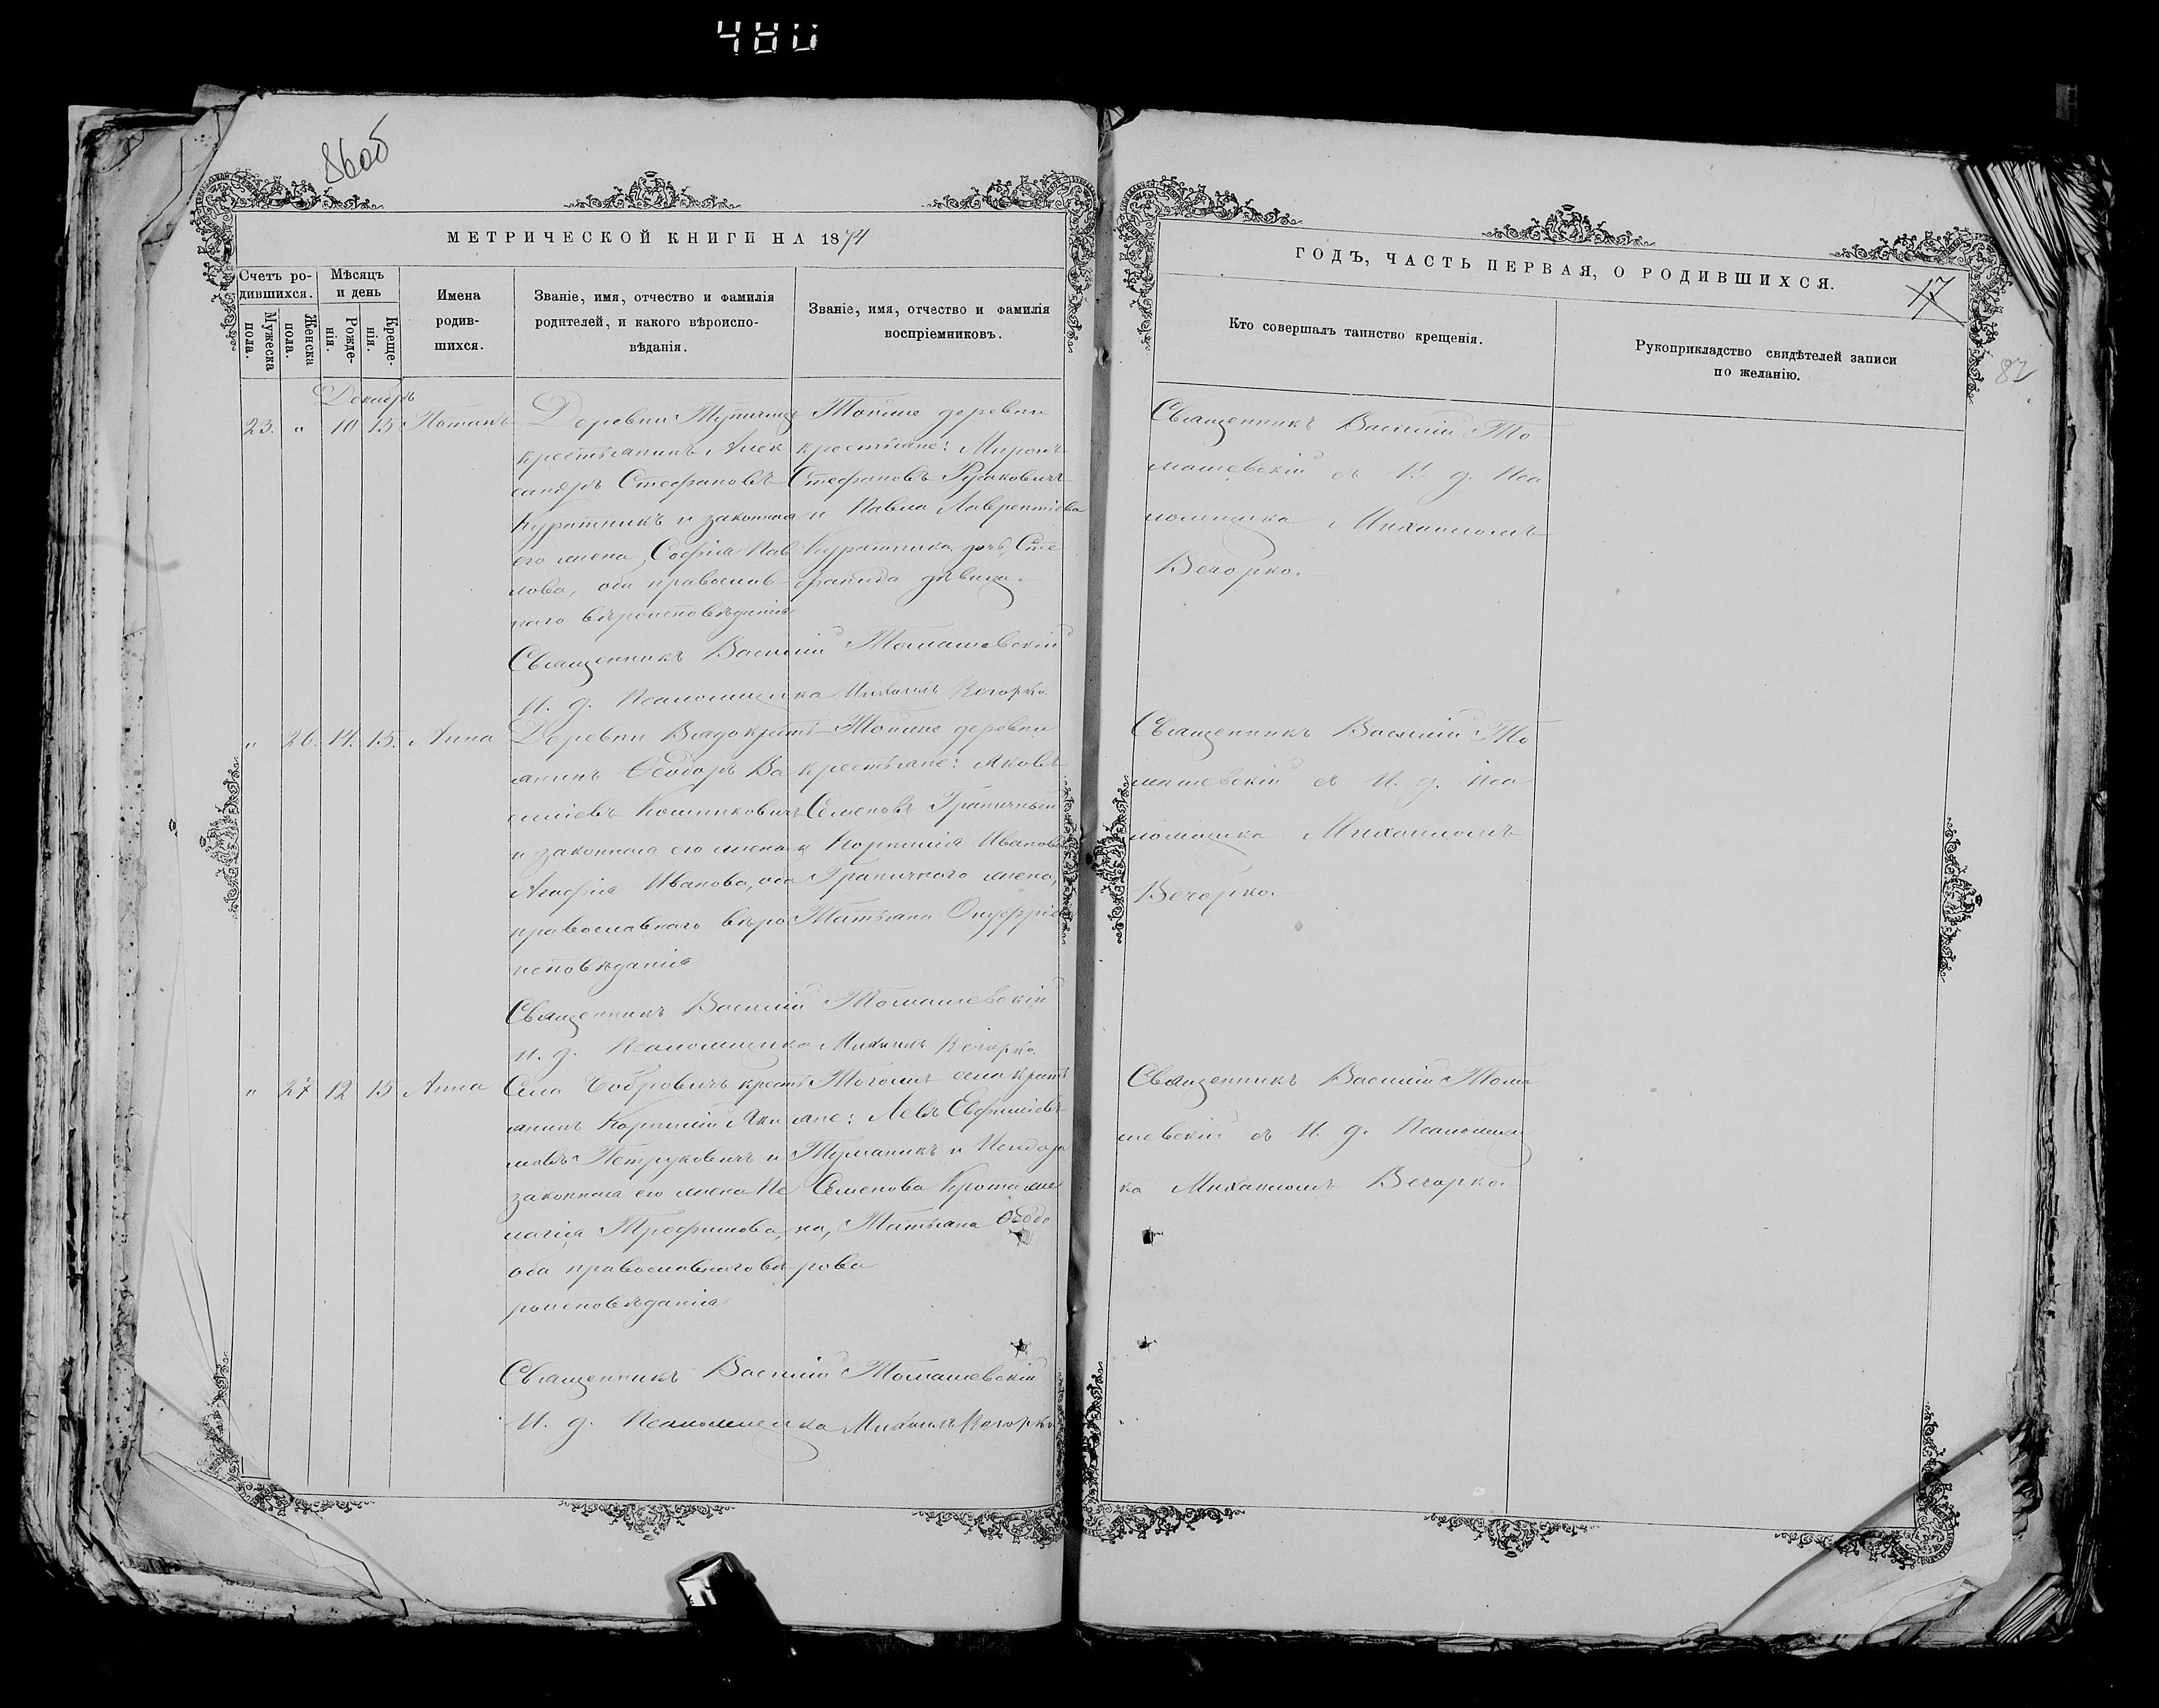 480
86об
МЕТРИЧЕСКОЙ КНИГИ НА 1874
Счетъ ро-
дившихся.
Мѣсяцъ
и день
Мужеска
пола.
Женска
пола.
Рожде-
нія.
Креще-
нія.
Имена
родив-
шихся.
Званіе, имя, отчество и фамилія
родителей, и какого вѣроиспо-
вѣданія.
Званіе, имя, отчество и фамилія
воспріемниковъ.
Декабрь
23. " 10 15 Потапъ
Деревни
крестьянинъ Алек
сандръ Стефановъ
Куратникъ и законная
его жена София Пав
лова, оба православ
наго вѣроисповѣданія
Тойже деревни
крестьяне: Миронъ
Стефановъ
и Павла Лаврентіева
Куратника дочь, Сте
фанида дѣвица.
Священникъ Василій Томашевскій
И. д. Псаломщика Михаилъ Вечорко.
" 26. 14. 15. Анна
Деревни крестьянинъ
Ѳеодоръ Ва
силіевъ Кошниковичъ
и законная его жена
Агафія Иванова, оба
православнаго вѣро
исповѣданія
Тойже деревни
крестьяне: Яковъ
Семеновъ Граничный
и Корнилія Иванова
Граничного жена,
Татьяна Онуфріева
Священникъ Василій Томашевскій
И. д. Псаломщика Михаилъ Вечорко.
" 27 12 15 Анна
Села Бобровичъ кресть
янинъ Корнилій Яки
мовъ Петруковичъ и
законная его жена Пе
лагія Трофимова,
оба православнаго вѣ
роисповѣданія
Тогожъ села кресть
яне: Левъ Евфиміевъ
Туманикъ и Исидора
Семенова Крота же
на, Татьяна Ѳеодо
рова
Священникъ Василій Томашевскій
И. д. Псаломщика Михаилъ Вечорко.
ГОДЪ, ЧАСТЬ ПЕРВАЯ, О РОДИВШИХСЯ.
17
87
Кто совершалъ таинство крещенія.
Рукоприкладство свидѣтелей записи
по желанію.
Священникъ Василій То
машевскій съ И. д. Пса
ломщика Михаиломъ
Вечорко.
Священникъ Василій То
машевскій съ И. д. Пса
ломщика Михаиломъ
Вечорко.
Священникъ Василій Тома
шевскій съ И. д. Псаломщи
ка Михаиломъ Вечорко.